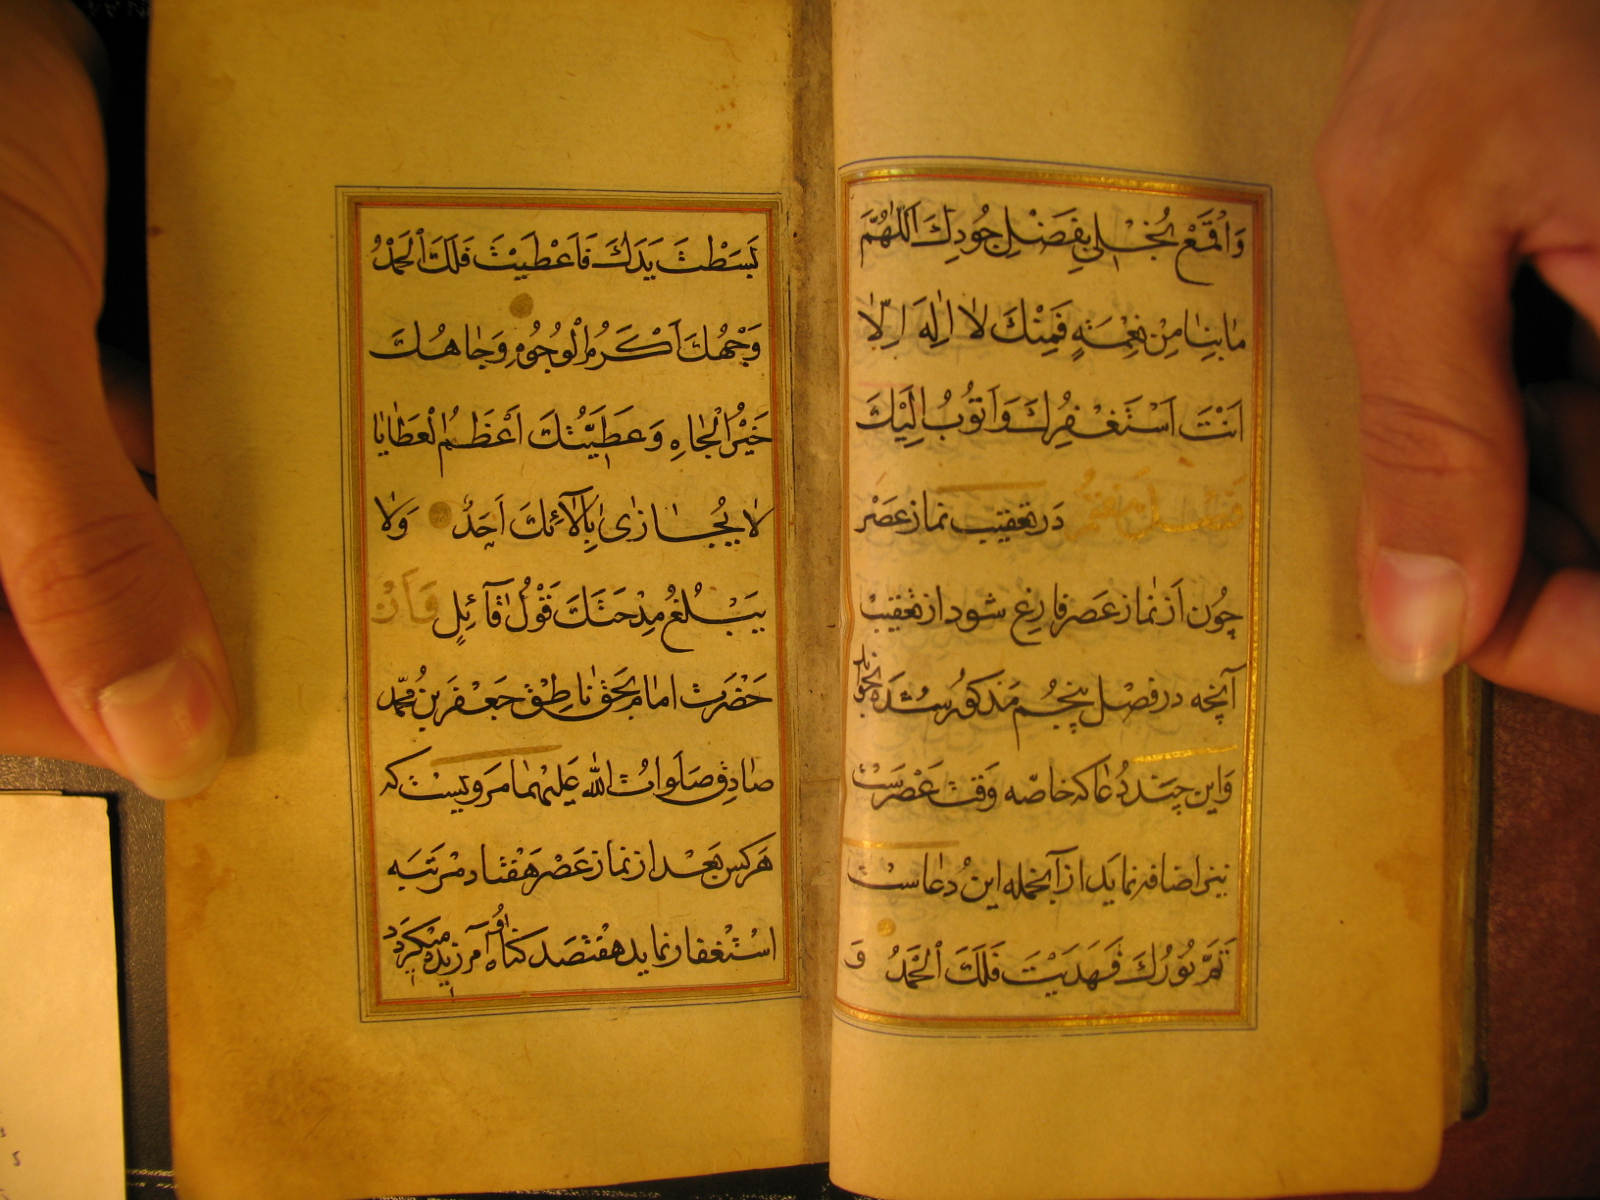 وَاقْمَعْ بُخْلِي بِفَضْلِ جُودِكَ اَللّٰهُمَّ
مٰا بِنٰا مِنْ نِعْمَةٍ فَمِنْكَ لاٰ اِلٰهَ اِلّاٰ
اَنْتَ اَسْتَغْفِرُكَ وَاَتُوبُ اِلَيْكَ
فصل هفتم در تعقیب نماز عَصْر
چُون اَز نماز عَصر فارغ شود از تعقیب
آنچه در فصل پنجُم مَذکوُر شُدَه بخواند
وَاین چَند دُعا که خاصّه وَقت عَصْرَسْت
نیز اضافه نماید از آنجمله این دُعاست
تَمَّ نُورُكَ فَهَدَيْتَ فَلَكَ اَلْحَمْدُ وَ
بَسَطْتَ يَدَكَ فَاَعْطَيْتَ فَلَكَ اَلْحَمْدُ
وَجْهُكَ اَكْرَمُ الْوُجُوهِ وَجٰاهُكَ
خَيْرُ الْجٰاهِ وَعَطِيَّتُكَ اَعْظَمُ الْعَطٰايٰا
لاٰ يُجٰازٰى بِاٰلآئِكَ اَحَدٌ وَلاٰ
يَبْلُغُ مِدْحَتَكَ قَوْلُ قٰآئِلٍ وَاَزْ
حَضْرَت امٰام بَحَق نٰاطِق جَعْفَر بنُ مُحمّد
صٰادِق صَلَواتُ اللّٰه عَلَيْهِمٰا مَرویست که
هَرکس بَعْد از نماز عَصْر هَفْتاد مَرْتَبَه
اسْتغفار نماید هفتصَد کناه اُو آمرزیده میکردد